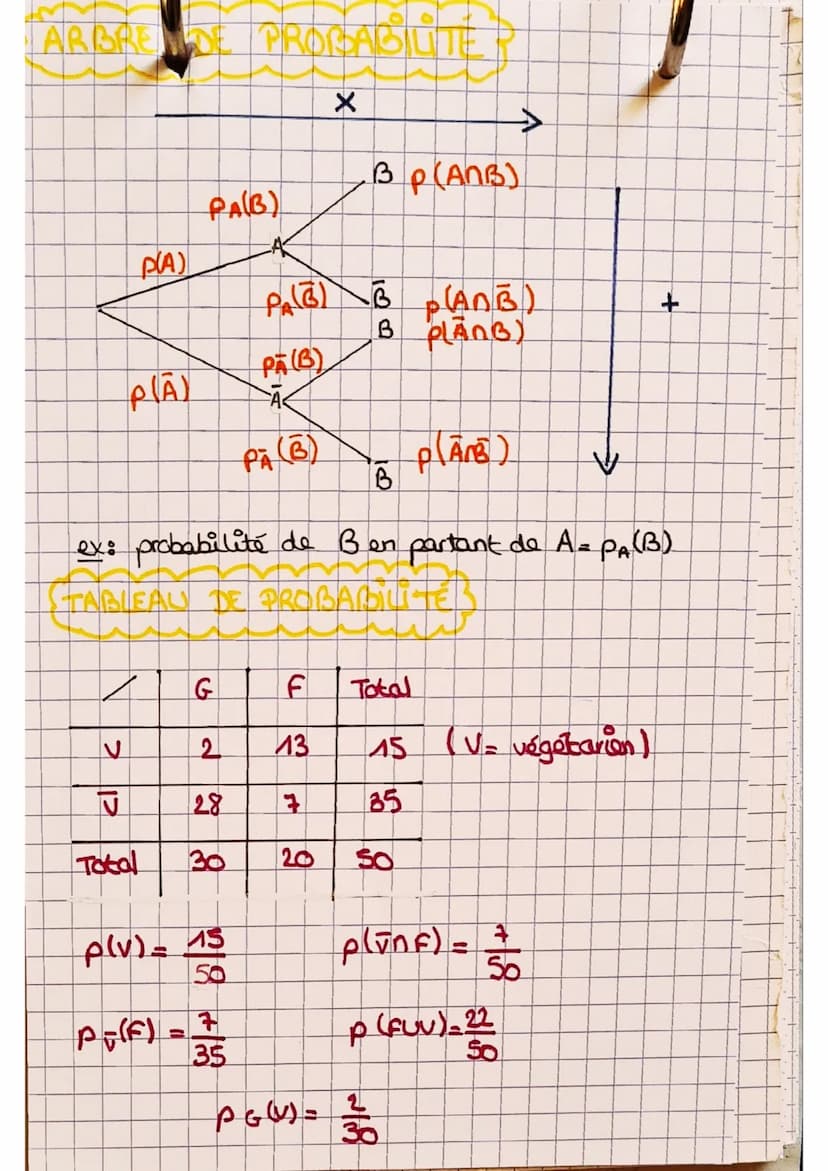 ARBRE DE PROBABILITÉ
×
B p(A∩B)
pA(B)
A
p(A)
pA(B̄) B̄ p(A∩B̄)
B p(Ā∩B)
pĀ(B)
p(Ā) Ā
pĀ(B̄) p(Ā∩B̄)
B̄
+
ex: probabilité de B en partant de A = pA(B)
TABLEAU DE PROBABILITÉ
/ G F Total
V 2 13 15 (V= végétarien)
V̄ 28 7 35
Total 30 20 50
p(V) = 15/50 p(V̄∩F) = 7/50
pV̄(F) = 7/35 p(F∪V) = 22/50
pG(V) = 2/30